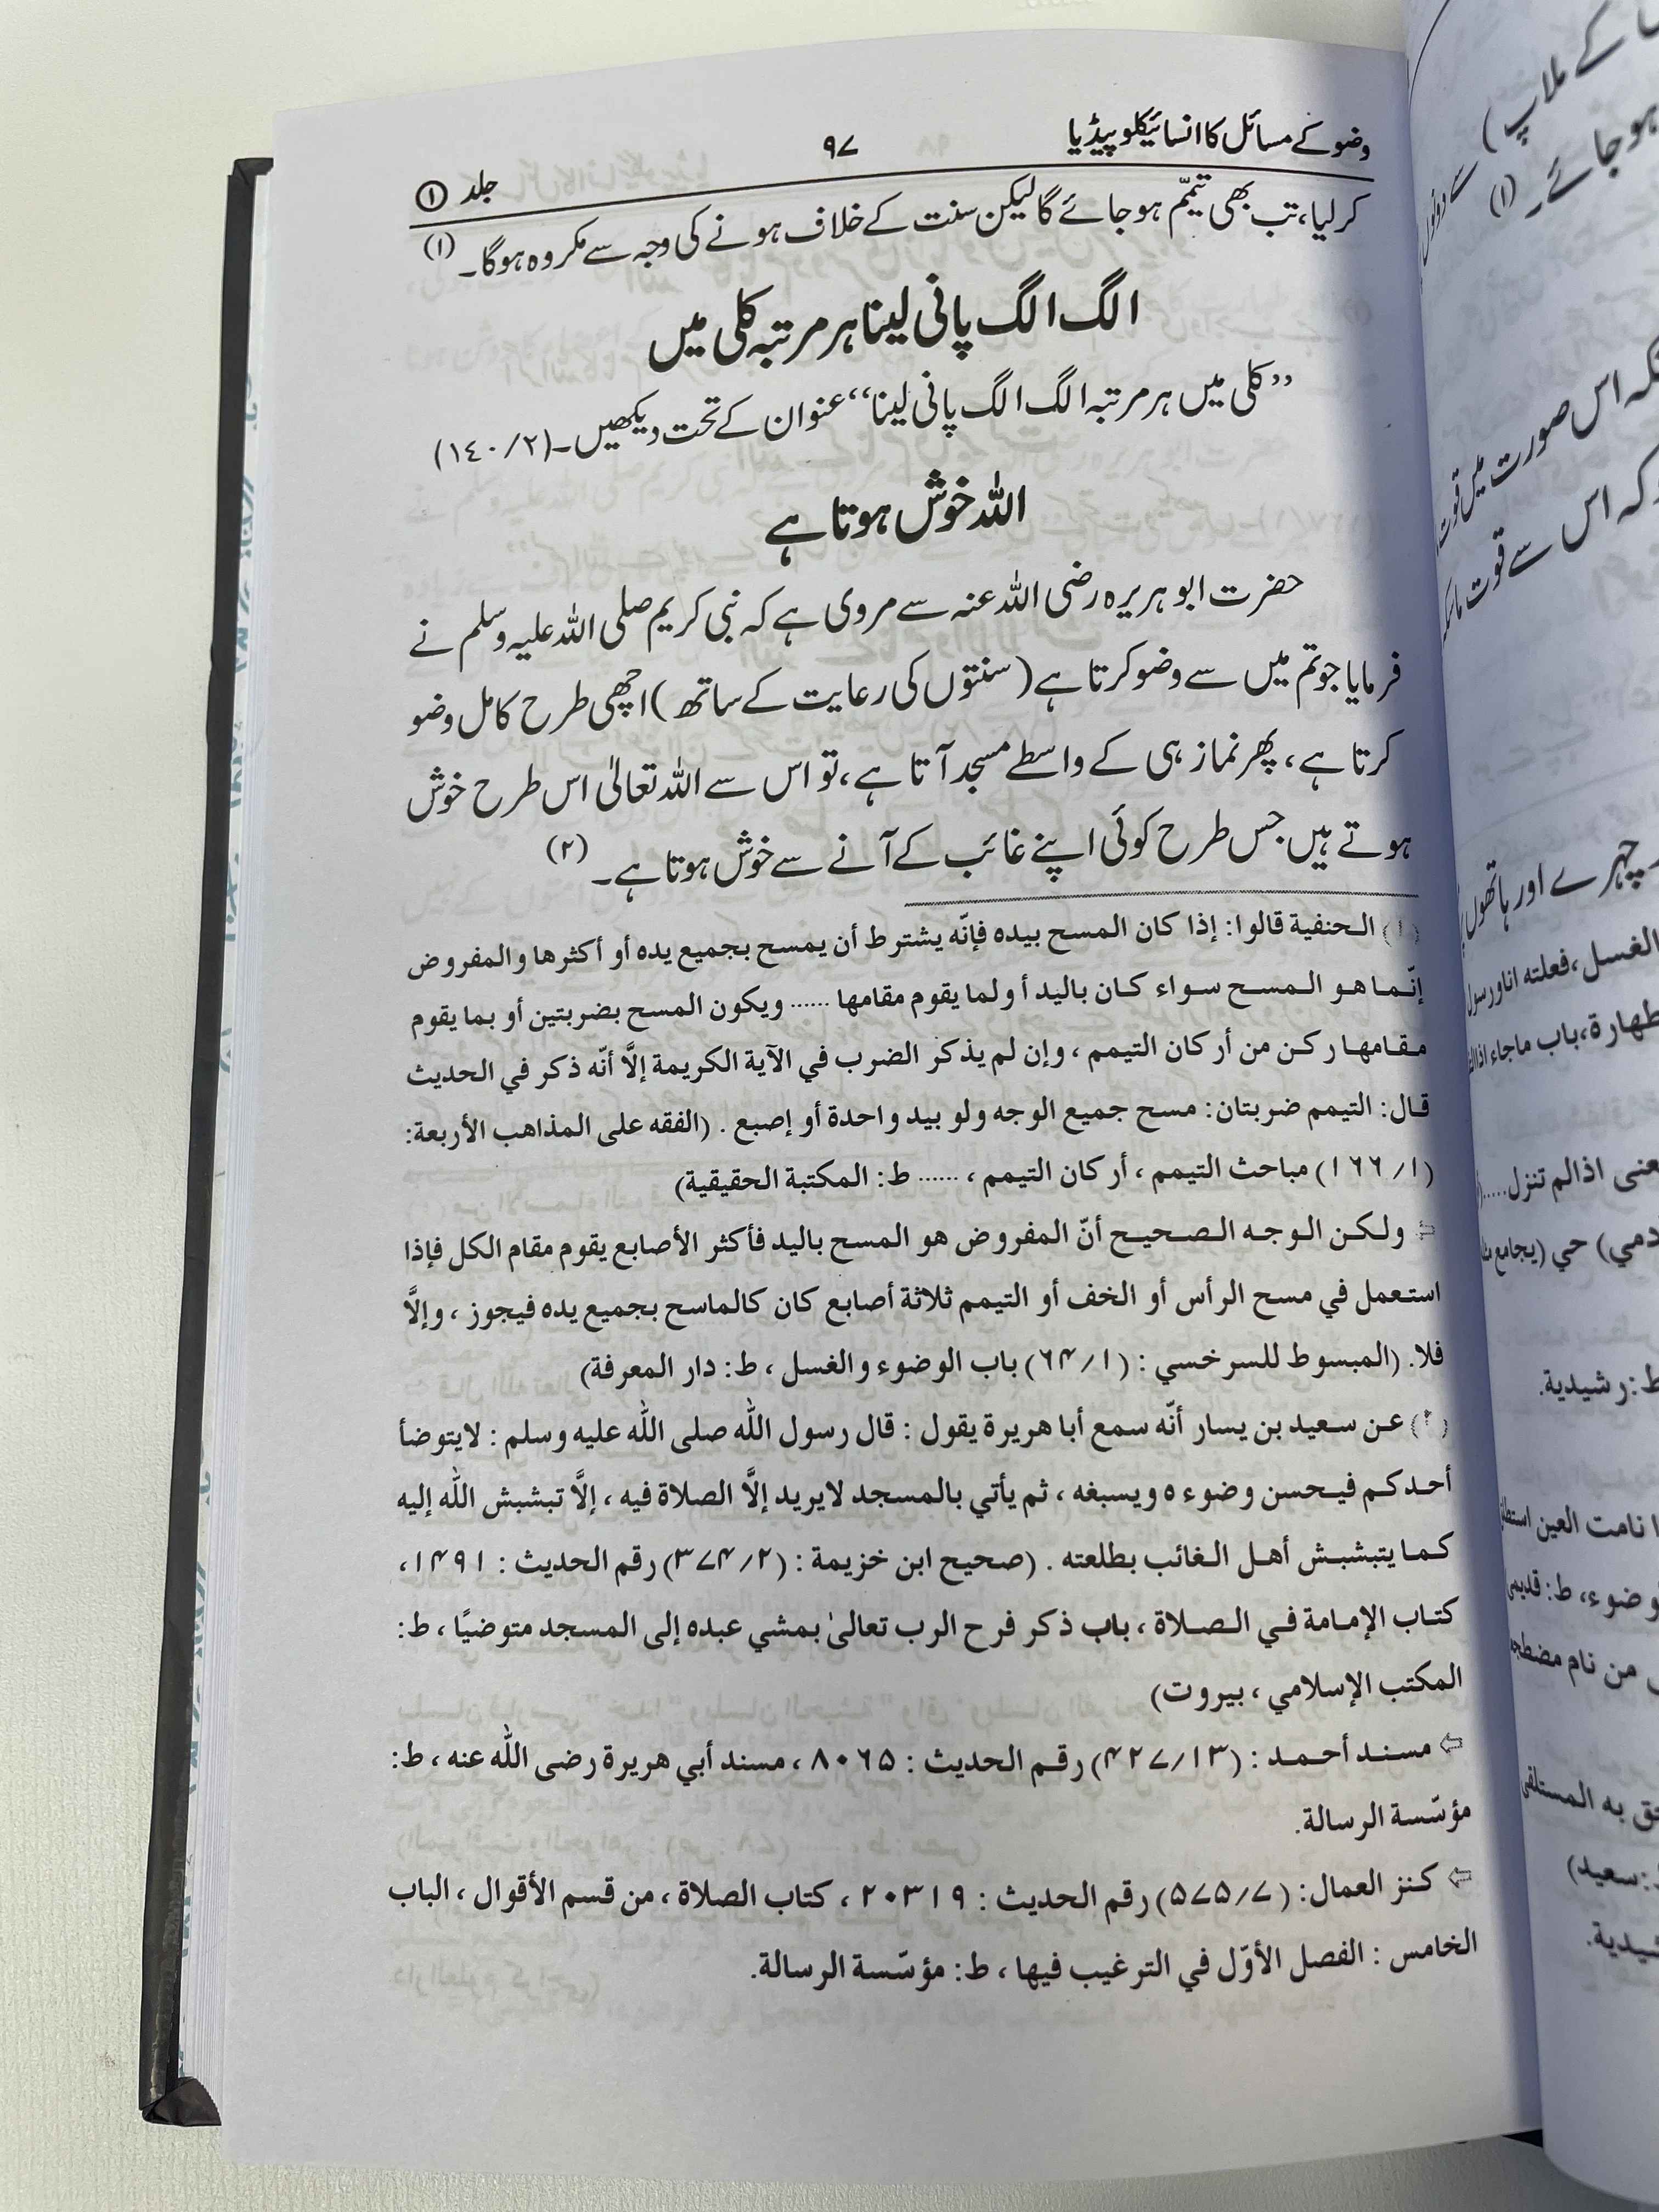 وضو کے مسائل کا انسائیکلوپیڈیا ۹۷ جلد ①
کرلیا، تب بھی تیمّم ہوجائے گا لیکن سنت کے خلاف ہونے کی وجہ سے مکروہ ہوگا۔ (۱)
الگ الگ پانی لینا ہر مرتبہ کلی میں
”کلی میں ہر مرتبہ الگ الگ پانی لینا“ عنوان کے تحت دیکھیں۔ (۱٤۰/۲)
اللہ خوش ہوتا ہے
حضرت ابو ہریرہ رضی اللہ عنہ سے مروی ہے کہ نبی کریم صلی اللہ علیہ وسلم نے
فرمایا جو تم میں سے وضو کرتا ہے (سنتوں کی رعایت کے ساتھ) اچھی طرح کامل وضو
کرتا ہے، پھر نماز ہی کے واسطے مسجد آتا ہے، تو اس سے اللہ تعالیٰ اس طرح خوش
ہوتے ہیں جس طرح کوئی اپنے غائب کے آنے سے خوش ہوتا ہے۔ (۲)
(۱) الحنفية قالوا: إذا كان المسح بيده فإنّه يشترط أن يمسح بجميع يده أو أكثرها والمفروض
إنّما هو المسح سواء كان باليد أو لما يقوم مقامها ...... ويكون المسح بضربتين أو بما يقوم
مقامها ركن من أركان التيمم ، وإن لم يذكر الضرب في الآية الكريمة إلَّا أنّه ذكر في الحديث
قال: التيمم ضربتان: مسح جميع الوجه ولو بيد واحدة أو إصبع . (الفقه على المذاهب الأربعة:
(۱/۱۶۶) مباحث التيمم ، أركان التيمم ، ...... ط: المكتبة الحقيقية)
⇦ ولكن الوجه الصحيح أنّ المفروض هو المسح باليد فأكثر الأصابع يقوم مقام الكل فإذا
استعمل في مسح الرأس أو الخف أو التيمم ثلاثة أصابع كان كالماسح بجميع يده فيجوز ، وإلَّا
فلا. (المبسوط للسرخسي : (۱/۶۴) باب الوضوء والغسل ، ط: دار المعرفة)
(۲) عن سعيد بن يسار أنّه سمع أبا هريرة يقول : قال رسول اللّٰه صلى اللّٰه عليه وسلم : لايتوضأ
أحدكم فيحسن وضوءه ويسبغه ، ثم يأتي بالمسجد لايريد إلَّا الصلاة فيه ، إلَّا تبشبش اللّٰه إليه
كما يتبشبش أهل الغائب بطلعته . (صحيح ابن خزيمة : (۲/۳۷۴) رقم الحديث : ۱۴۹۱ ،
كتاب الإمامة في الصلاة ، باب ذكر فرح الرب تعالىٰ بمشي عبده إلى المسجد متوضيًا ، ط:
المكتب الإسلامي ، بيروت)
⇦ مسند أحمد : (۱۳/۴۲۷) رقم الحديث : ۸۰۶۵ ، مسند أبي هريرة رضى اللّٰه عنه ، ط:
مؤسّسة الرسالة.
⇦ كنز العمال: (۷/۵۷۵) رقم الحديث : ۲۰۳۱۹ ، كتاب الصلاة ، من قسم الأقوال ، الباب
الخامس : الفصل الأوّل في الترغيب فيها ، ط: مؤسّسة الرسالة.
کے ملاپ)
ہوجائے۔ (۱)
اس صورت میں قوت
کہ اس سے قوت ماسکہ
چہرے اور ہاتھوں
الغسل، فعلته انا ورسول
باب ماجاء اذا
اذا لم تنزل.....
حي (يجامع
ط: رشيدية.
نامت العين
ط: قديمي
من نام مضطجعا
به المستلقي
سعيد)